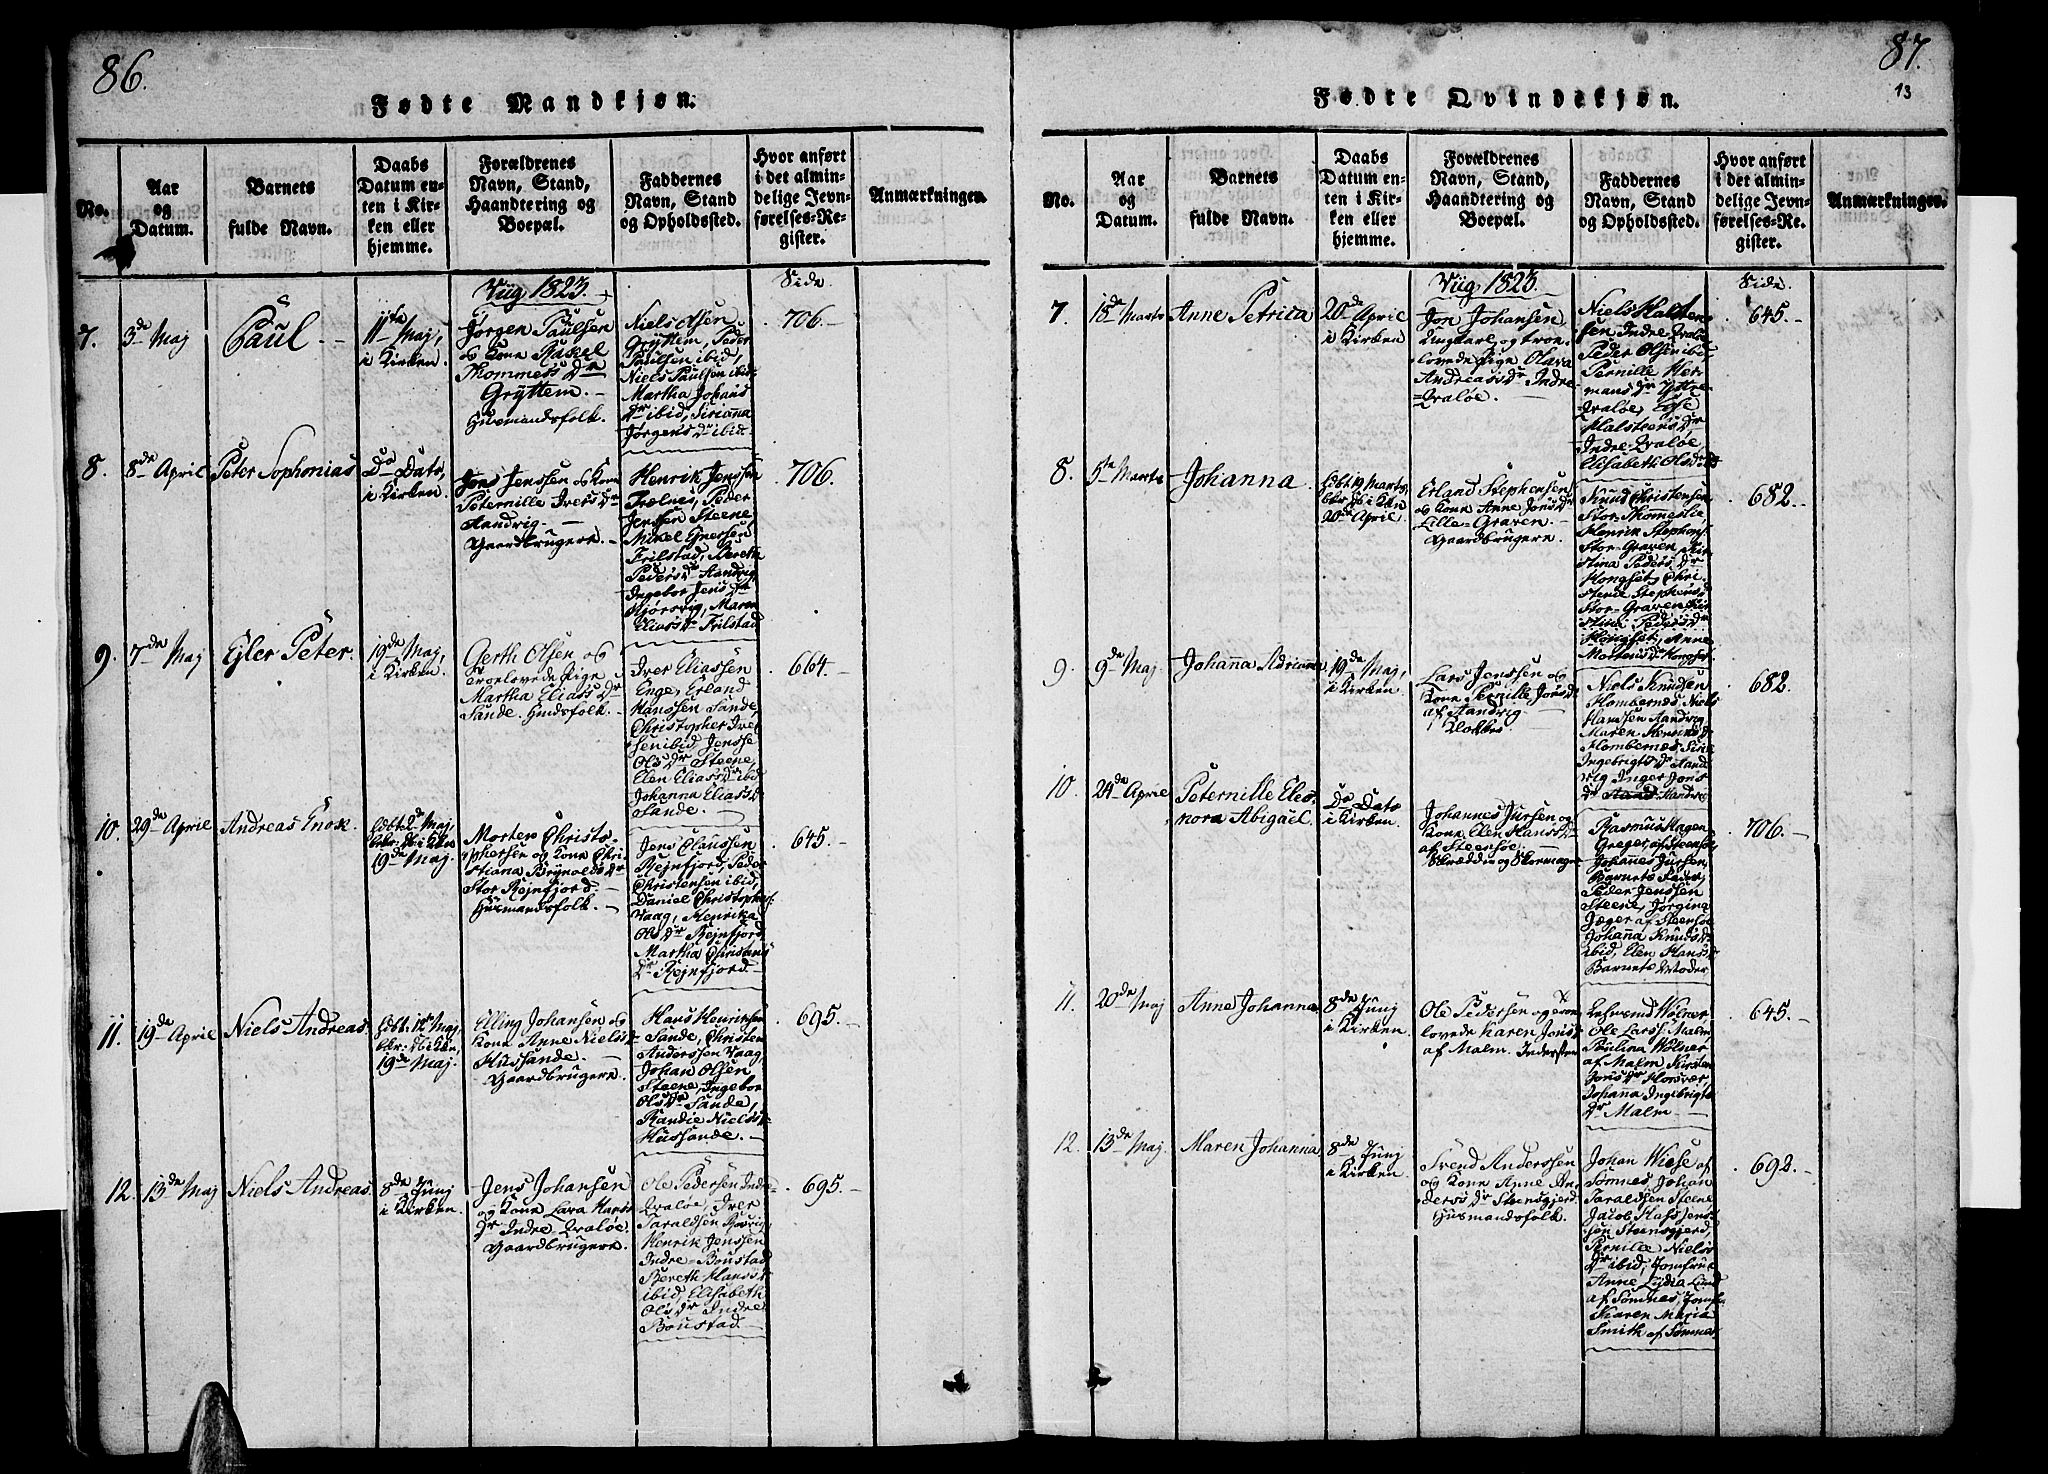 86.
Fødte Mandkjøn.
No.
Aar
og
Datum.
Barnets
fulde Navn.
Daabs
Datum en-
ten i Kir-
ken eller
hjemme.
Forældrenes
Navn, Stand,
Haandtering og
Boepæl.
Faddernes
Navn, Stand
og Opholdssted.
Hvor anført
i det almin-
delige Jevn-
førelses-Re-
gister.
Anmærkninger.
Viig 1823.
Side.
7.
3de Maj
Paul
11te Maj,
i Kirken.
Jørgen Paulsen
og Kone Rakel
Thommess Dr
Gryttem.
Huusmandsfolk.
Niels Olsen
Gryttem, Peder
Paulsen ibid,
Niels Paulsen ibid
Martha Johans
Dr ibid, Sirianna
Jørgens Dr ibid.
706.
8.
8de April
Peter Sophonias
Do Dato,
i Kirken.
Jens Jenssen og Kone
Peternille Ivers Dr
Aandvig.
Gaardbrugere.
Henrik Jenssen
Trælnes, Peder
Jenssen Steene
Mikel Ejnersen
Trilstad, Bereth
Peders Dr Aandvig
Ingebor Jens Dr
Kjørsvig, Maren
Elias Dr Trilstad
706.
9.
7de Maj
Ejler Peter.
19de Maj,
i Kirken.
Gerth Olsen og
troelovede Pige
Martha Eliass Dr
Sande. Huusfolk.
Iver Eliassen
Enge, Erland
Hanssen Sande,
Christopher Ivel
sen ibid, Jensse
Ols Dr Steene,
Elen Eliass Dr ibid
Johanna Elias Dr
Sande.
664.
10.
29de April
Andreas Enok
hdbt 2de Maj,
19de Maj.
Morten Christo-
phersen og Kone Chri-
stiana Brynolds Dr
Stor Rejnfjord.
Huusmandsfolk.
Jens Claussen
Rejnfjord, Peder
Christensen ibid,
Daniel Christophers
Vaag, Henrika
Ols Dr Rejnfjord,
Martha Christians
Dr Rejnfjord.
645.
11.
19de April
Niels Andreas.
19de Maj.
Elling Johansen og
Kone Anne Niels Dr
Hussande.
Gaardbrugere.
Hans Henriksen
Sande, Christen
Anderssen Vaag,
Johan Olsen
Steene, Ingebor
Ols Dr Sande,
Randie Niels Dr
Hussande.
695.
12.
13de Maj
Niels Andreas.
8de Junij
i Kirken.
Jens Johansen
og Kone Lava Hans
Dr Indre Qvaløe.
Gaardbrugere.
Ole Pedersen Indre-
Qvaløe, Iver
Taraldsen
Henrik Jenssen
Indre-Boustad
Bereth Hans Dr
ibid, Elisabeth
Ols Dr Indre
Boustad.
695.
87.
13
Fødte Qvindekjøn.
No.
Aar
og
Datum.
Barnets
fulde Navn.
Daabs
Datum en-
ten i Kir-
ken eller
hjemme.
Forældrenes
Navn, Stand,
Haandtering og
Boepæl.
Faddernes
Navn, Stand
og Opholdssted.
Hvor anført
i det almin-
delige Jevn-
førelses-Re-
gister.
Anmærkninger.
Viig 1823.
Side.
7.
18de Marts
Anne Petrica
20de April
i Kirken
Jon Johansen
Ungkarl og troe-
lovede Pige Olava
Andreass Dr Indre
Qvaløe.
Niels Halsten-
sen Indre Qvaløe
Peder Olsen ibid
Pernille Her-
mans Dr Yttre-
Qvaløe,
Halsteens Dr
Indre-Qvaløe
Elisabeth Ols Dr
645.
8.
5te Marts
Johanna.
hdbt 19 Marts,
20de April
Erland Stephensen
og Kone Anne Jons Dr
Lille-Graven.
Gaardbrugere.
Knud Christensen
Stor-Thommeslie
Henrik Stephens
Stor-Graven, Kir-
stina Peders Dr
Hongset, Chri-
stense Stephens Dr
Stor-Graven, Kir-
stina Peders Dr
Hongset, Anne
Mortens Dr Hongset
682.
9.
9de Maj.
Johanna Adrianna
19de Maj,
i Kirken.
Lars Jenssen og
Kone Pernille Jons Dr
af Aandvig
Klokker.
Niels Knudsen
Hombornes, Niels
Hanssen Aandvig
Maren Henriks Dr
Hombernes, Sine
Ingebrigts Dr Aand
vig Inger Jons
Dr Aandvig
682.
10.
24de April
Peternille Eleo-
nora Abigael.
Do Dato
i Kirken.
Johannes Jursen og
Kone Elen Hans Dr
af Steensøe
Skrædder og Skomager
Rasmus Hagen
Greger af Steensøe
Johannes Jursen
Barnets Fader,
Peder Jenssen
Steene, Jørgina
Jæger af Steensøe
Johanna Knuds Dr
ibid, Elen Hans Dr
Barnets Moder
706.
11.
20de Maj
Anne Johanna
8de Junij
i Kirken.
Ole Pedersen og troe
lovede Karen Jons Dr
af Malm. Indersten
Ole Lars Malm
Paulina Wølner
af Malm Kirsten
Jons Dr Horsvær
Johanna Ingebrigts
Dr Malm
645.
12.
13de Maj.
Maren Johanna
8de Junij
i Kirken.
Svend Anderssen
og Kone Anne An-
ders Dr Steensgjerd
Huusmandsfolk.
Johan Wiese af
Sømnes, Johan
Taraldsen Steene
Jacob Hass Jens-
sen Steensgjerd,
Pernille Niels
Dr ibid, Jomfrue
Anne Lydia Lund
af Sømnes, Jomfr.
Karen Maria
Smith af Sømnes
692.